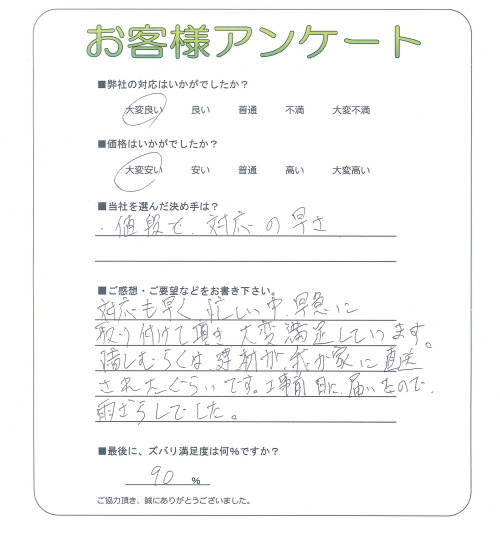 お客様アンケート
■弊社の対応はいかがでしたか？
大変良い 良い 普通 不満 大変不満
■価格はいかがでしたか？
大変安い 安い 普通 高い 大変高い
■当社を選んだ決め手は？
・値段と、対応の早さ
■ご感想・ご要望などをお書き下さい。
対応も早く、忙しい中、早急に
取り付けて頂き大変満足しています。
惜しむらくは、 が、我が家に直送
されたぐらいです。工事前日に、届いたので、
雨ざらしでした。
■最後に、ズバリ満足度は何％ですか？
90 ％
ご協力頂き、誠にありがとうございました。